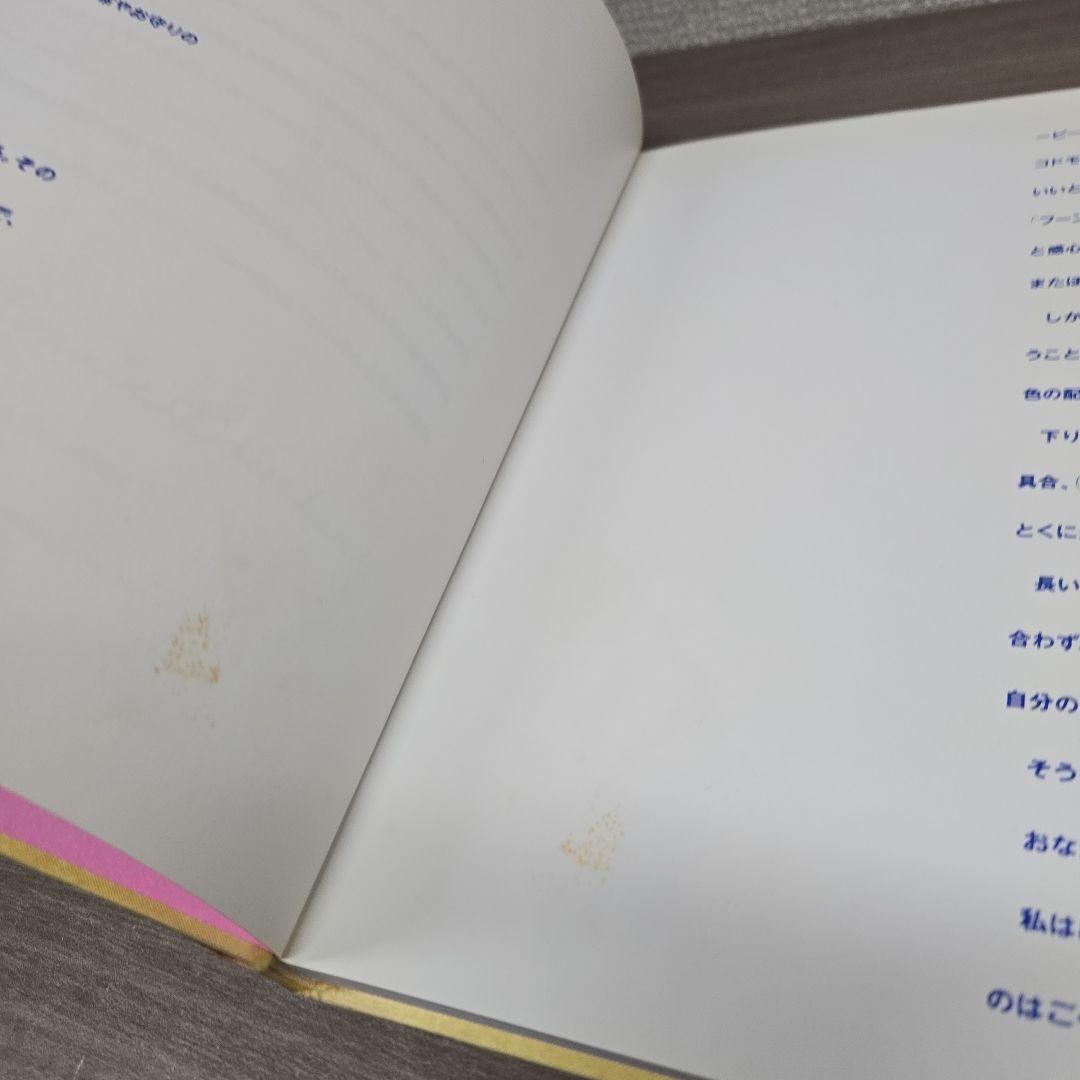 やお守りの
その
ービー
コドモ
いいと
「フーン
と感心
または
しか
うこと
色の配
下り
具合。(
とくに
長い
合わず
自分の
そう
おな
私は
のはこ